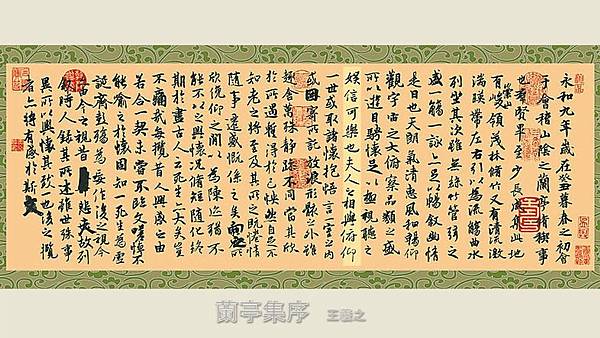 永和九年歲在癸丑暮春之初會
于會稽山陰之蘭亭脩稧事
也羣賢畢至少長咸集此地
有崇山峻領茂林脩竹又有清流激
湍暎帶左右引以為流觴曲水
列坐其次雖無絲竹管弦之
盛一觴一詠亦足以暢敘幽情
是日也天朗氣清惠風和暢仰
觀宇宙之大俯察品類之盛
所以遊目騁懷足以極視聽之
娛信可樂也夫人之相與俯仰
一世或取諸懷抱悟言一室之內
或因寄所託放浪形骸之外雖
趣舍萬殊靜躁不同當其欣
於所遇暫得於己怏然自足不
知老之將至及其所之既惓情
隨事遷感慨係之矣向之所
欣俛仰之閒以為陳迹猶不
能不以之興懷況脩短隨化終
期於盡古人云死生亦大矣豈
不痛哉每攬昔人興感之由
若合一契未嘗不臨文嗟悼不
能喻之於懷固知一死生為虛
誕齊彭殤為妄作後之視今
亦由今之視昔悲夫故列
敘時人錄其所述雖世殊事
異所以興懷其致一也後之攬
者亦將有感於斯文
蘭亭集序 王羲之